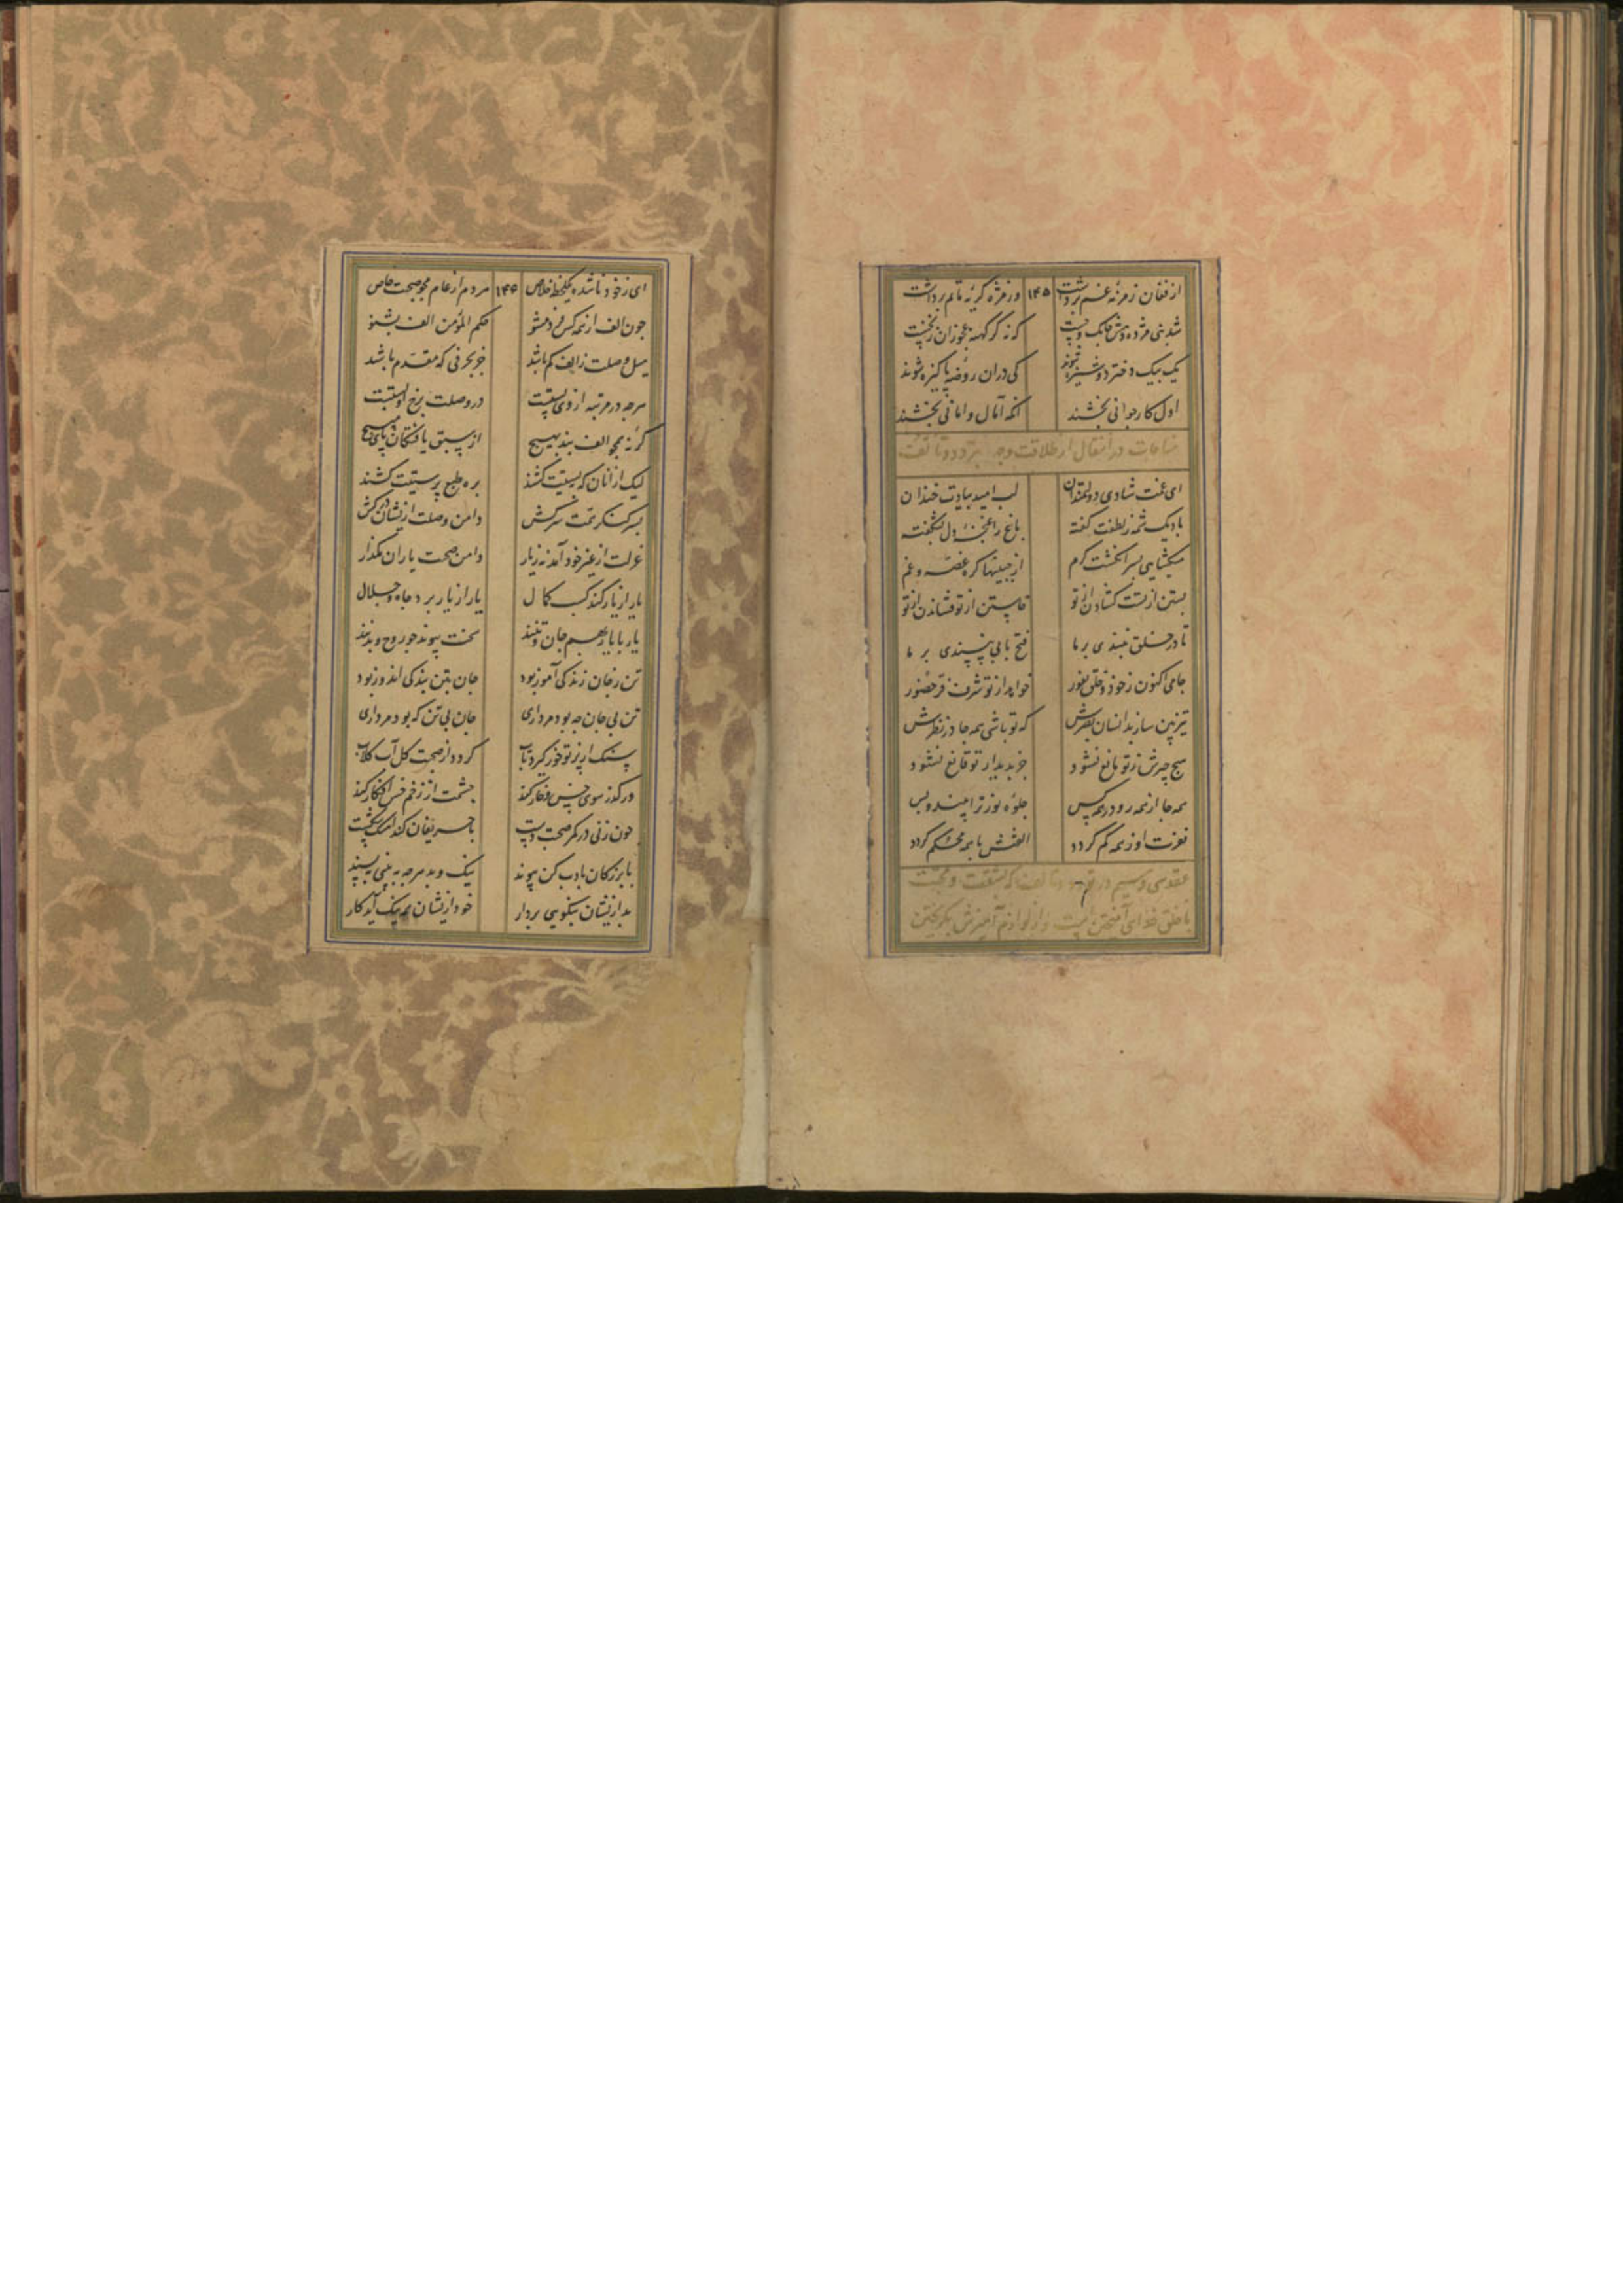 از فغان زمزمه غم برداشت ۱۴۵ وز مژه گریه ماتم برداشت
شد نبی مژده دهش چابک و چست که نه گر کهنه عجوزان ز نخست
یک بیک دختر دوشیزه شوند کی در ان روضه پاکیزه شوند
اول کار جوانی بخشند انکه آمال و امانی بخشند
مناجات در انتقال از طلاقت وجه بتودد و تالف
ای غمت شادی دولتمندان لب امید بیادت خندان
با دیک شمه ز لطفت گفته باغ را غنچه دل بشکفته
میکشایی بسر انگشت کرم از جبینها گره غصه و غم
بستن از تست گشادن از تو خاستن از تو فشاندن از تو
تا در خلق نبندی بر ما فتح بابی بپسندی بر ما
جامی اکنون ز خود و خلق نفور خواهد از تو شرف قرب حضور
تیزبین ساز بدانسان بصرش که تو باشی همه جا در نظرش
هیچ چیزش ز تو مانع نشود جز بدیدار تو قانع نشود
همه جا از همه رو در همه کس جلوه نور ترا بیند و بس
نفرت او ز همه کم گردد الفتش با همه محکم گردد
عقد سی و سیم در تودد و تالف که بشفقت و محبت
با خلق خدای آمیختن است و از لوازم آمیزش نگریختن
ای ز خود ناشده یکلحظه خلاص ۱۴۶ مردم از عام مجو صحبت خاص
چون الف از همه کس فرد مشو حکم المؤمن الف بشنو
میل وصلت ز الف کم باشد جز بحرفی که مقدم باشد
هرچه در مرتبه از وی پستست در وصلت برخ او بستست
گر نه همچو الف بند بهیچ از سبق یافتگان پای مپیچ
لیک از آنان که بپستیت کشند بره طبع پرستیت کشند
سرکش دامن وصلت ازیشان درکش
عزلت از غیر خود آمد نه ز یار دامن صحبت یاران مگذار
یار از یار کند کسب کمال یار از یار برد جاه و جلال
یار با یار بهم جان و تنند سخت پیوند چو روح و بدنند
تن ز جان زندگی آموز بود جان بتن بندگی اندوز بود
تن بی جان چه بود مرداری جان بی تن که بود مرداری
سنگ از پرتو خور گیرد تاب گردد از صحبت گل آب گلاب
ور گذر سوی خس و خار کند چشمت از زخم خس افکار کند
چون زنی در کمر صحبت دست با حریفان کند
با بزرگان بادب کن پیوند نیک و بد هرچه ببینی بپسند
بد ازیشان بنکویی بردار خود ازیشان همه نیک آید کار